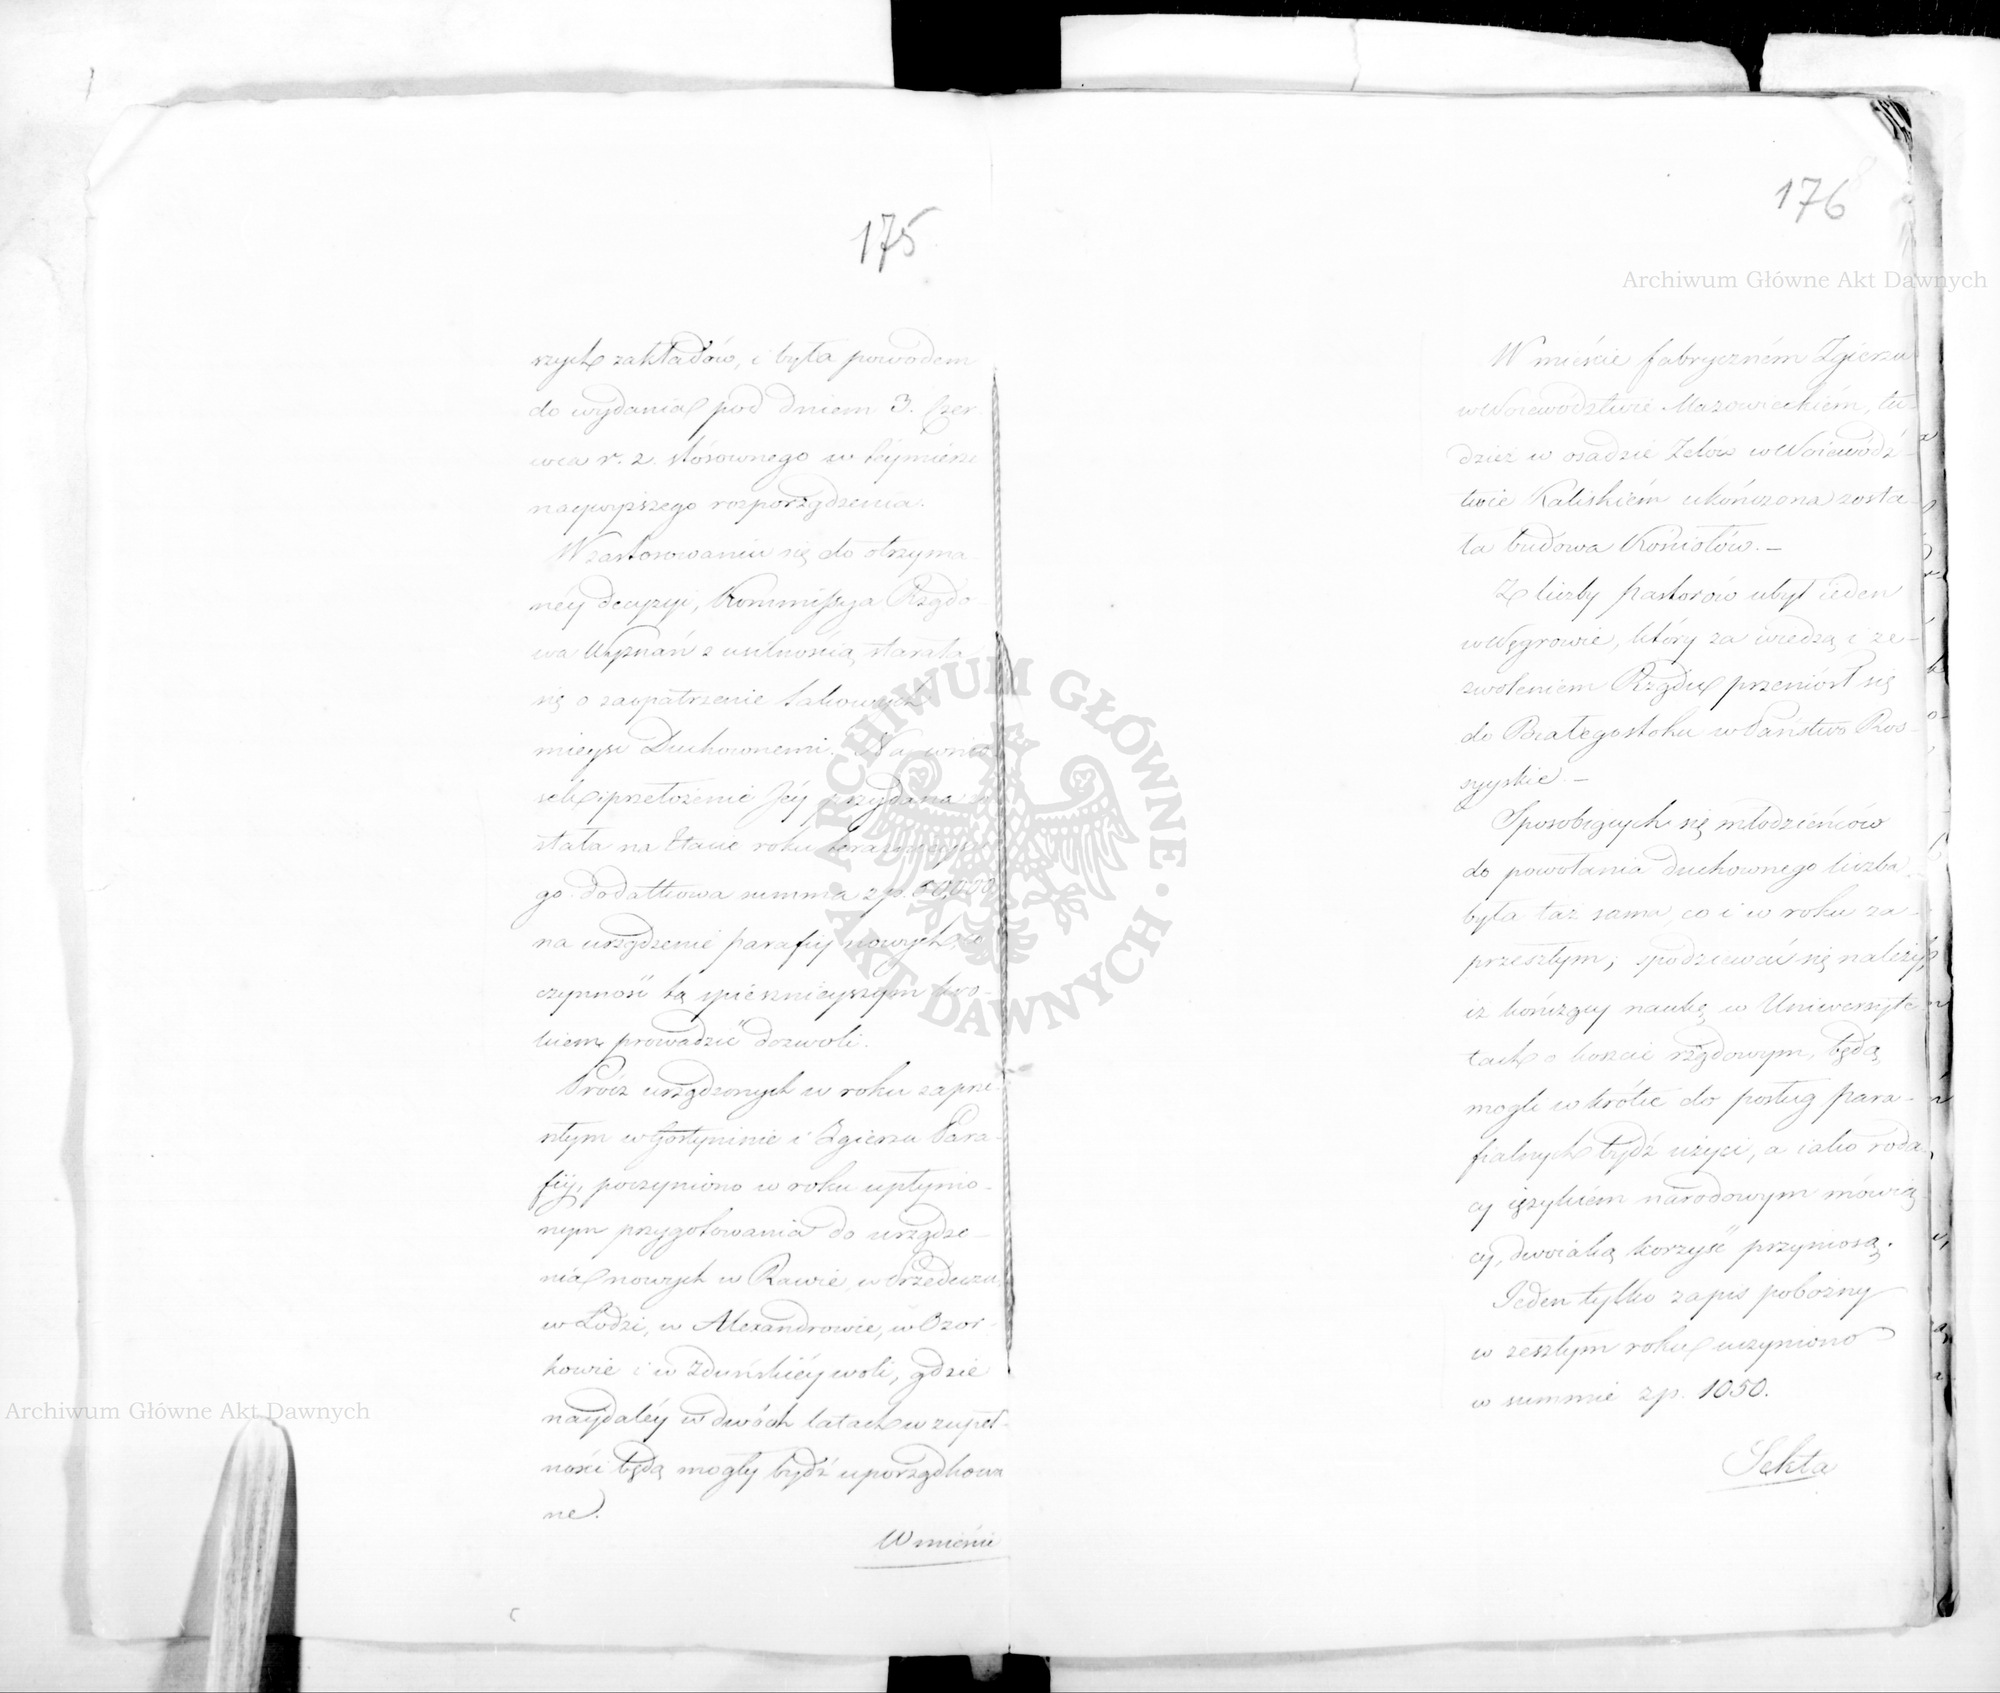 175
szych zakładów, i była powodem
do wydania pod dniem 3. Czer-
wca r. z. stósownego w téymierze
naywyższego rozporządzenia.
W zastosowaniu się do otrzyma-
néy decyzyi, Kommissya Rządo-
wa Wyznań z usilnością starała
się o zaopatrzenie takowych
mieysc Duchownemi. Na wnio-
sek i przełożenie Jéy przydana zo-
stała na Etacie roku
go dodatkowa summa zp.
na urządzenie parafiy nowych, co
czynność tą spiesznieyszym kro-
kiem prowadzić dozwoli.
Prócz urządzonych w roku zaprze-
szłym w Gostyninie i Zgierzu Para-
fiy, poczyniono w roku upłynio-
nym przygotowania do urządze-
nia nowych w Rawie, w Przedczu,
w Łodzi, w Alexandrowie, w Ozor-
kowie i w Zduńskiéy woli, gdzie
naydaléy w dwóch latach w zupeł-
ności będą mogły bydź uporządkowa
ne.
W mieście
176
W mieście fabryczném Zgierzu
w Woiewództwie Mazowieckiém, tu-
dzież w osadzie Zelów w Woiewódz-
twie Kaliskiém ukończona zosta-
ła budowa Kościołów. –
Z liczby pastorów ubył ieden
w Węgrowie, który za wiedzą i ze-
zwoleniem Rządu przeniósł się
do Białegostoku w Państwo Ros-
syyskie. –
Sposobiących się młodzieńców
do powołania duchownego liczba
była taż sama, co i w roku za-
przeszłym; spodziewać się należy,
iż kończący naukę w Uniwersyte-
tach o koszcie rządowym, będą
mogli wkrótce do posług para-
fialnych bydź użyci, a iako roda-
cy ięzykiem narodowym mówią-
cy, dwoiaką korzyść przyniosą.
Jeden tylko zapis pobożny
w zeszłym roku uczyniono
w summie zp. 1050.
Sekta
Archiwum Główne Akt Dawnych
Archiwum Główne Akt Dawnych
ARCHIWUM GŁÓWNE · AKT DAWNYCH ·